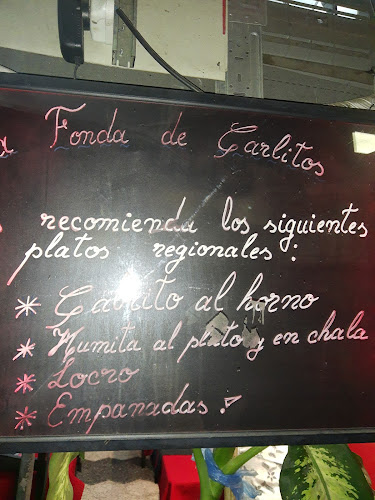 a Fonda de Carlitos
recomienda los siguientes
platos regionales:
* Cabrito al horno
* Humita al plato y en chala
* Locro
* Empanadas!